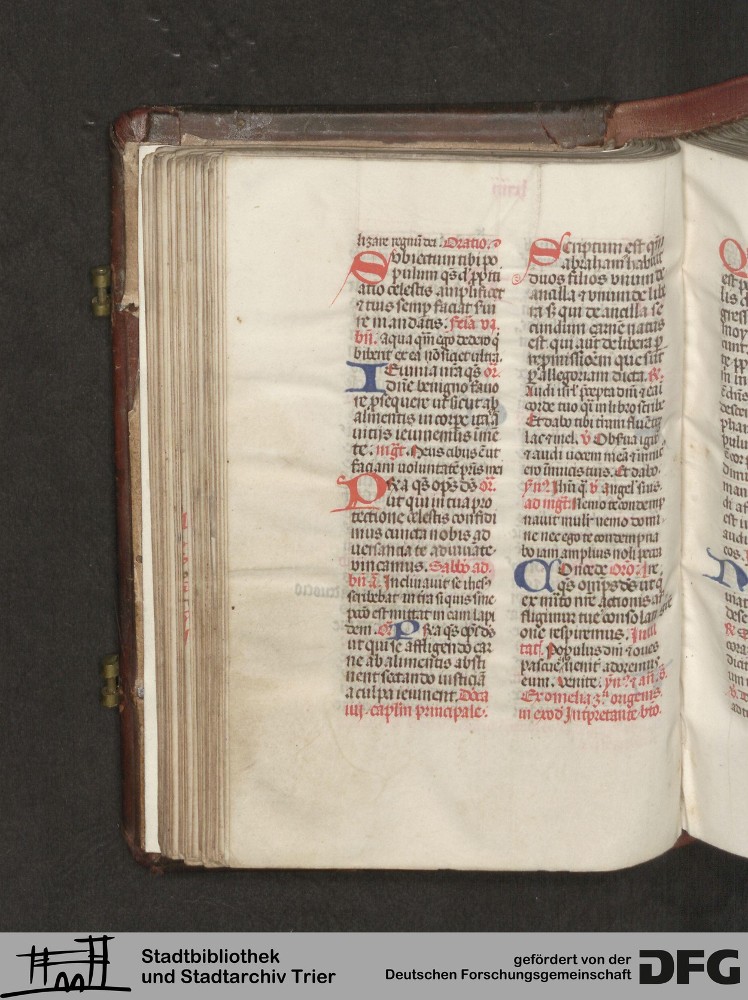 lizare regnū dei. Oratio.
Sobiectum tibi po
pulum qs dn̄e ꝓpiti
atio celestis amplificet
⁊ tuis semp faciat ser
ire mandatis. feria vi.
bn̄. aqua qm̄ ego dedero q̄
biberit ex ea nō siciet
Ieiunia nr̄a qs or.
dn̄e benigno fauo
re ꝓsequere ut sicut ab
alimentis in corpe ita a
vitijs ieiunemus in mē
te. mḡt. Meus cibus ē ut
faciam voluntatē pr̄is mei
Pra qs op̄s ds or.
ut qui in tua pro
tectione celestis confidi
mus cuncta nobis ad
uersantia te adiuuāte
vincamus. Sabbo ad
bn̄. ā. Inclinauit se ihs
scribebat in tra si quis sine
pctō est mittat in eam lapi
dem. Or Pra qs op̄s ds
ut qui se affligendo car
ne ab alimentis absti
nent sectando iusticiā
a culpa ieiunent. Dcā
iiij. capl̄m principale.
Scriptum est qm̄
abraham habuit
duos filios unum de
ancilla ⁊ vnum de libe
ra s; qui de ancilla se
cundum carnē natus
est qui aut de libera p
repmissioēm que sūt
p allegoriam dicta. R.
Audi isrl̄ p̄cepta dm̄ ⁊ ea ī
corde tuo q̄ in libro scribe
Et dabo tibi tram fluētē
lac ⁊ mel. v Obserua igit
⁊ audi vocem meā ⁊ inimic
ero inimicis tuis. Et dabo.
yn̄. Ihū q. v angel' suis.
ad mḡt. Nemo te condemp
nauit mulr̄ nemo domi
ne nec ego te condempna
bo iam amplius noli peccā
Concede Oro. re.
qs omps ds ut q
ex mīto nr̄e actionis af
fligimur tue consolatio
one respiremus. Inui
tat. Populus dm̄ ⁊ oues
pascue venit adoremus
eum. Venite. yn̄. ⁊ an. s.
Ex omelia origenis
in exod Intpretante bto.
Stadtbibliothek
und Stadtarchiv Trier
gefördert von der
Deutschen Forschungsgemeinschaft
DFG